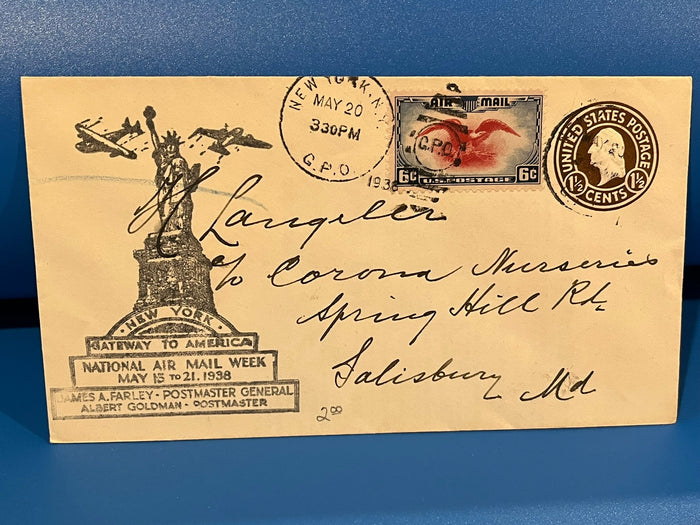 NEW YORK, N.Y.
MAY 20
330PM
G.P.O.
1938
AIR MAIL
G.P.O.
6c U.S. POSTAGE 6c
UNITED STATES POSTAGE
1½ CENTS 1½
Langeler
c/o Corona Nurseries
Spring Hill Rd.
Salisbury Md
NEW YORK
GATEWAY TO AMERICA
NATIONAL AIR MAIL WEEK
MAY 15 TO 21, 1938
JAMES A. FARLEY · POSTMASTER GENERAL
ALBERT GOLDMAN · POSTMASTER
2.00